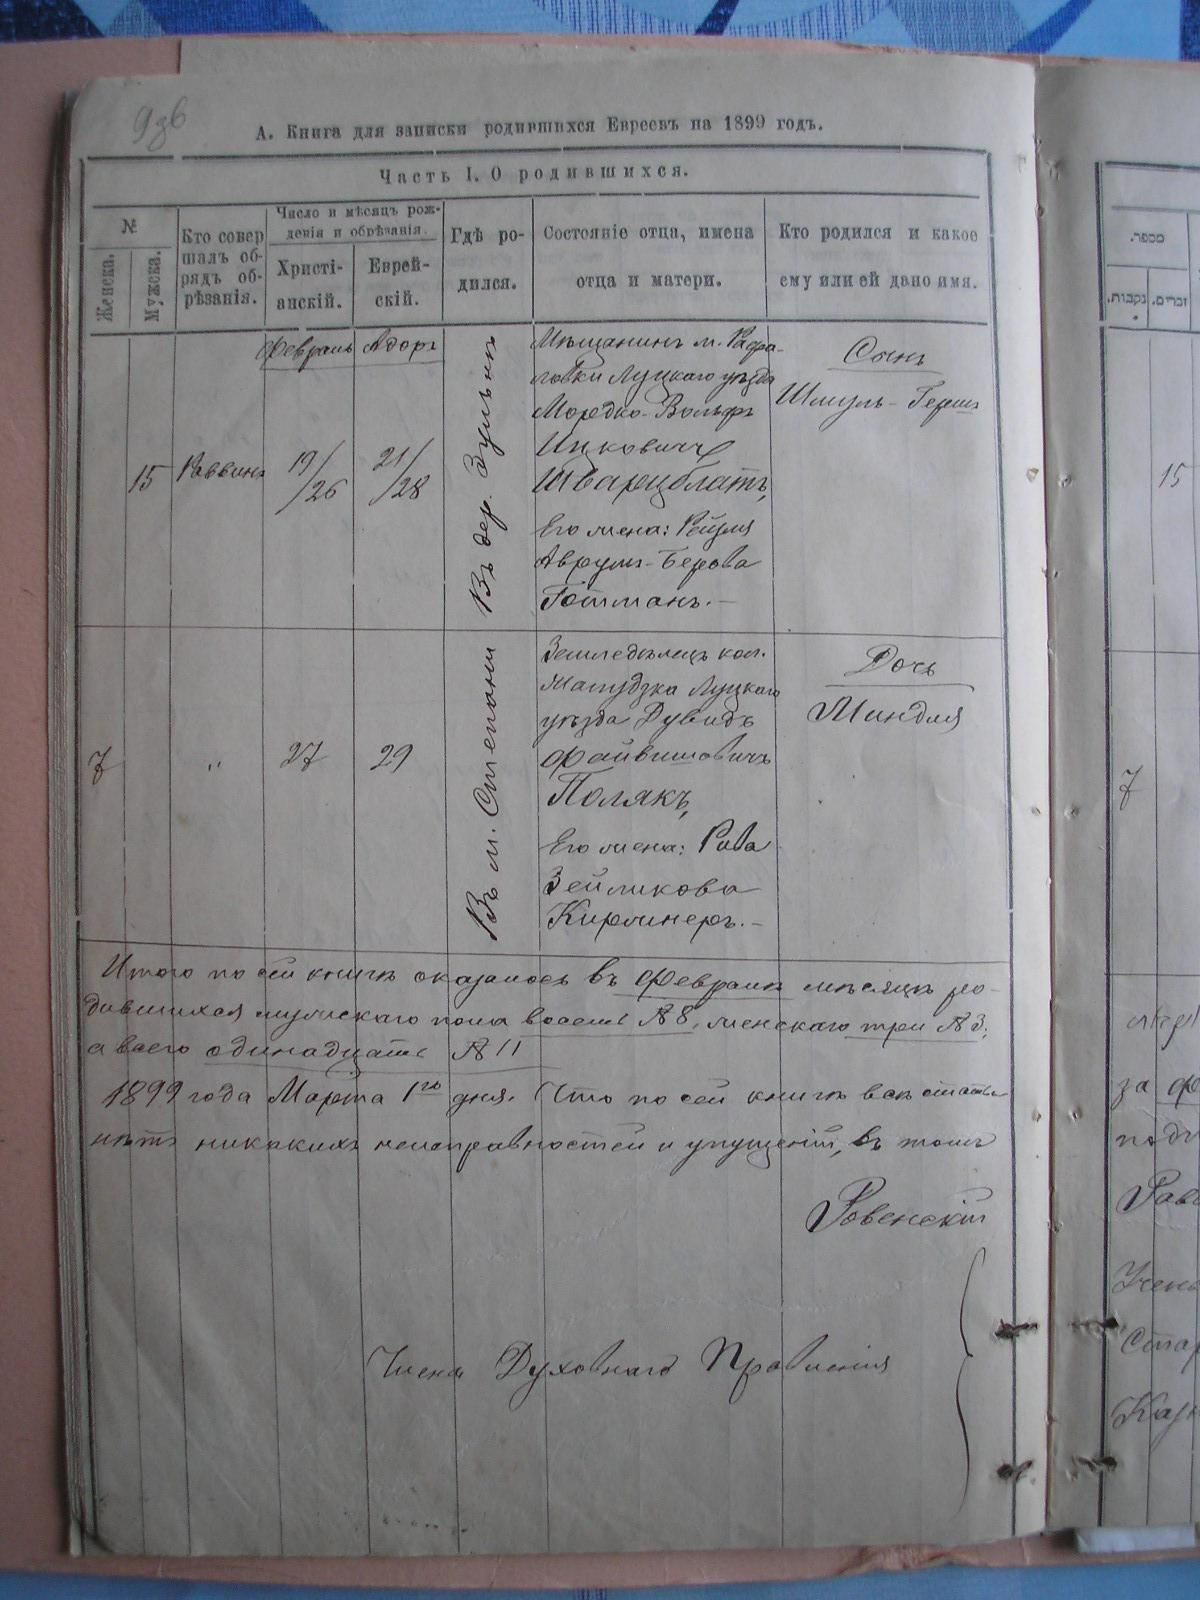 9зв
А. Книга для записки родившихся Евреевъ на 1899 годъ.
Часть I. О родившихся.
№
Женска.
Мужска.
Кто совер
шалъ об-
рядъ об-
рѣзанія.
Число и мѣсяцъ рож-
денія и обрѣзанія.
Христі-
анскій.
Еврей-
скій.
Гдѣ ро-
дился.
Состояніе отца, имена
отца и матери.
Кто родился и какое
ему или ей дано имя.
Февраль Адоръ
15 Раввинъ 19/26 21/28
Въ дер. Зулькѣ
Мѣщанинъ м. Рафа-
ловки Луцкаго уѣзда
Мордко-Вольфъ
Ицковичъ
Шварцблатъ,
Его жена: Рейзля
Аврумъ-Берова
Готманъ.—
Сынъ
Шмуль-Гершъ
7 " 27 29
Въ м. Степани
Земледѣлецъ кол.
Луцкаго
уѣзда Дувидъ
Файвишовичъ
Полякъ,
Его жена: Рива
Зейликова
Киржнеръ.—
Дочь
Миндля
Итого по сей книгѣ оказалось въ Февралѣ мѣсяцѣ ро-
дившихся мужскаго пола восемь № 8, женскаго три № 3,
а всего одинадцать № 11
1899 года Марта 1го дня. Что по сей книгѣ всѣ статьи
нѣтъ никакихъ неисправностей и упущеній, въ томъ
Ровенскій
Члены Духовнаго Правленія
מספר.
נקבות.
זכרים.
15
7
за
Учен
Стар
Каз